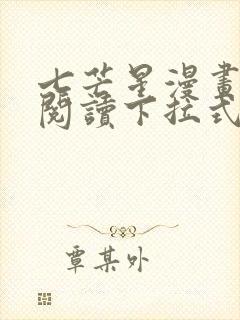 七芒星漫畫
閱讀下拉式
覃某外